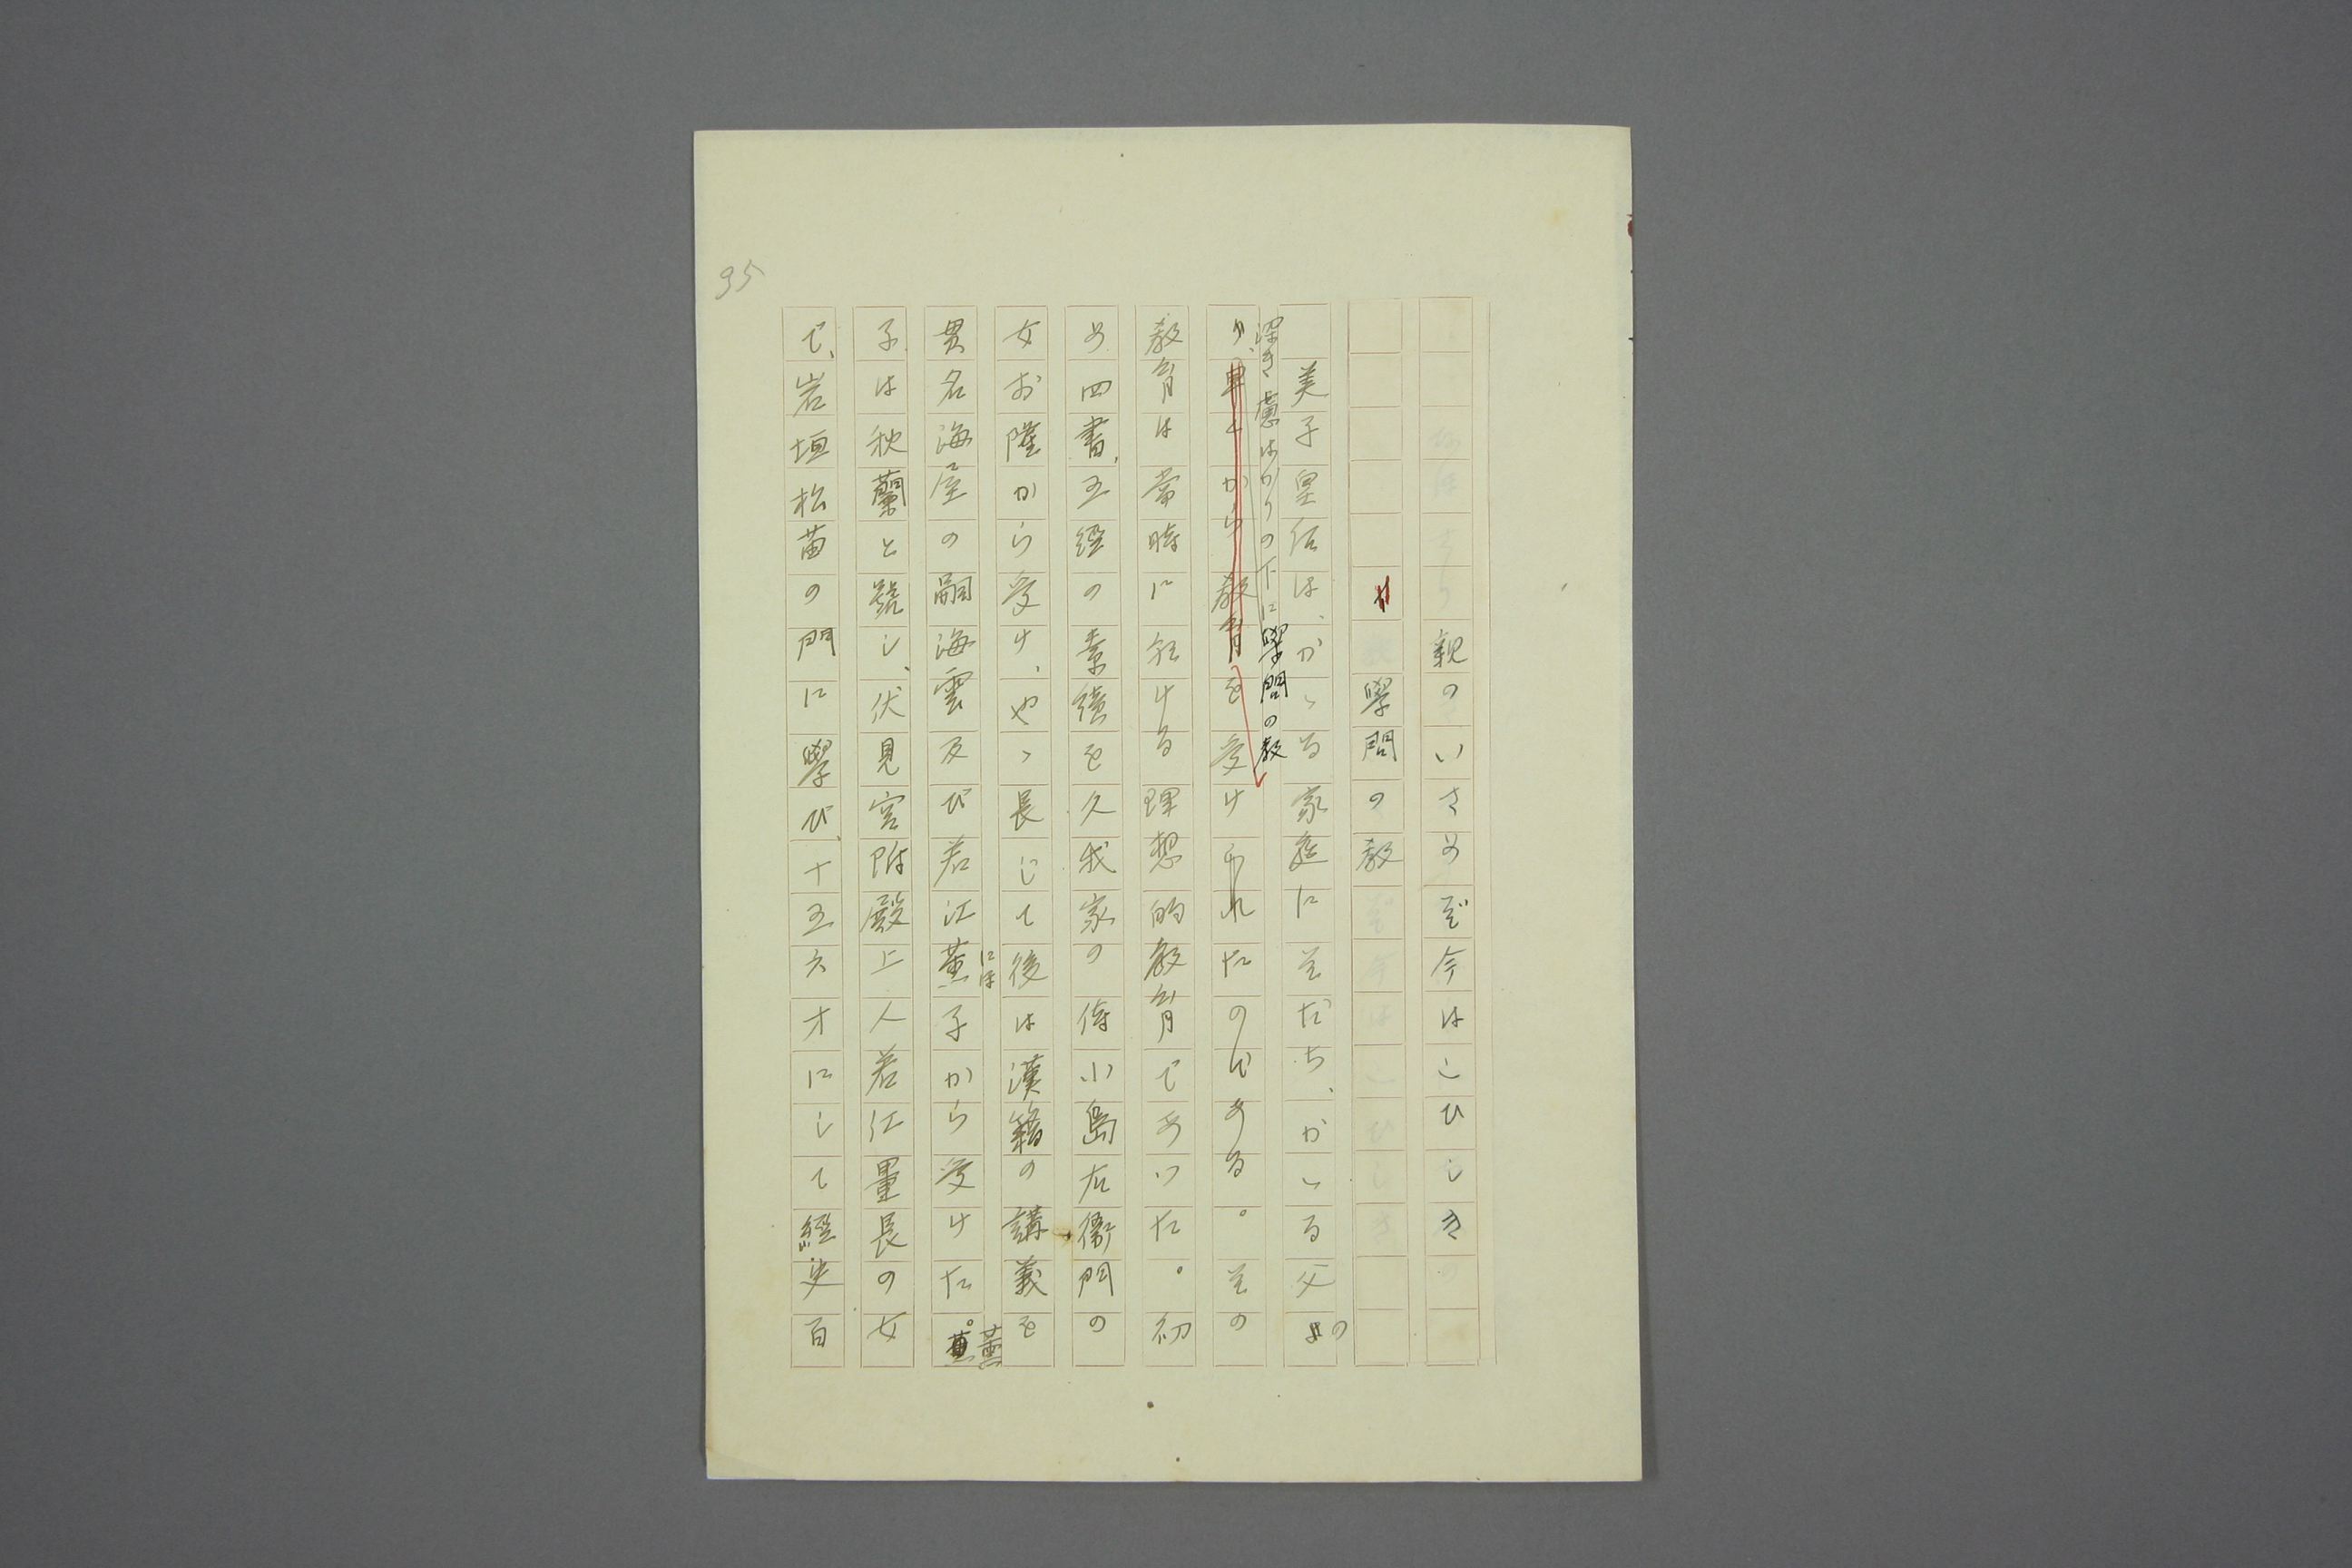 親のいさめぞ今はこひしき
學問の教
美子皇后は、かゝる家庭にそだち、かゝる父の
深き慮はかりの下に學問の教
を受けられたのである。その
教育は當時に於ける理想的教育であつた。初
め四書、五經の素讀を久我家の侍小島右衞門の
女お陸から受け、やゝ長じて後は漢籍の講義を
貫名海屋の嗣海雲及び若江薫子から受けた。薫
には
子は秋蘭と號し、伏見宮附殿上人若江量長の女
で、岩垣松苗の門に學び、十五六才にして經史百
95